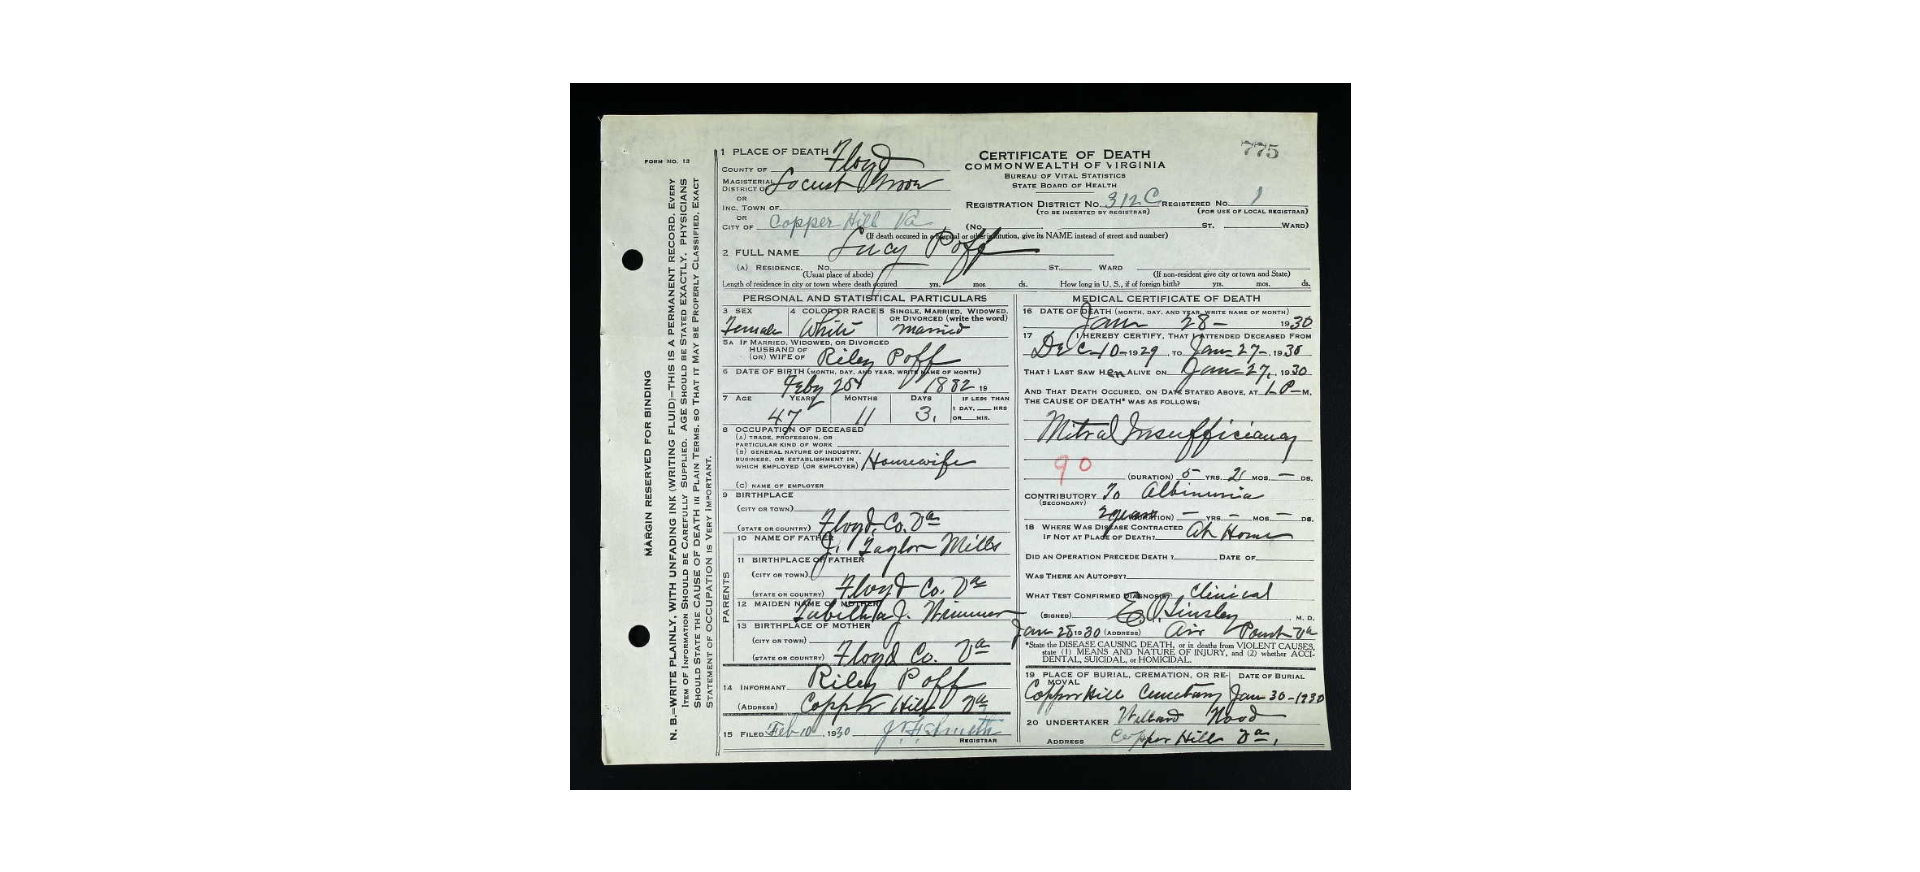 775
FORM NO. 12
MARGIN RESERVED FOR BINDING
N. B.—WRITE PLAINLY, WITH UNFADING INK (WRITING FLUID)—THIS IS A PERMANENT RECORD. EVERY
ITEM OF INFORMATION SHOULD BE CAREFULLY SUPPLIED. AGE SHOULD BE STATED EXACTLY. PHYSICIANS
SHOULD STATE THE CAUSE OF DEATH IN PLAIN TERMS, SO THAT IT MAY BE PROPERLY CLASSIFIED. EXACT
STATEMENT OF OCCUPATION IS VERY IMPORTANT.
CERTIFICATE OF DEATH
COMMONWEALTH OF VIRGINIA
BUREAU OF VITAL STATISTICS
STATE BOARD OF HEALTH
1 PLACE OF DEATH
COUNTY OF Floyd
MAGISTERIAL DISTRICT OF Locust Grove
OR
INC. TOWN OF
OR
CITY OF Copper Hill Va
REGISTRATION DISTRICT NO. 312C REGISTERED NO. 1
(TO BE INSERTED BY REGISTRAR) (FOR USE OF LOCAL REGISTRAR)
(No. ST. WARD)
(If death occured in a hospital or other institution, give its NAME instead of street and number)
2 FULL NAME Lucy Poff
(A) RESIDENCE. No. ST. WARD
(Usual place of abode) (If non-resident give city or town and State)
Length of residence in city or town where death occured yrs. mos. ds. How long in U. S., if of foreign birth? yrs. mos. ds.
PERSONAL AND STATISTICAL PARTICULARS
3 SEX 4 COLOR OR RACE 5 SINGLE, MARRIED, WIDOWED, OR DIVORCED (write the word)
Female White married
5A IF MARRIED, WIDOWED, OR DIVORCED
HUSBAND OF
(OR) WIFE OF Riley Poff
6 DATE OF BIRTH (MONTH, DAY, AND YEAR, WRITE NAME OF MONTH)
Feby 25 1882 19
7 AGE YEARS MONTHS DAYS IF LESS THAN
1 DAY, HRS
OR MIN.
47 11 3
8 OCCUPATION OF DECEASED
(A) TRADE, PROFESSION, OR
PARTICULAR KIND OF WORK
(B) GENERAL NATURE OF INDUSTRY,
BUSINESS, OR ESTABLISHMENT IN
WHICH EMPLOYED (OR EMPLOYER) Housewife
(C) NAME OF EMPLOYER
9 BIRTHPLACE
(CITY OR TOWN)
(STATE OR COUNTRY) Floyd, Co. Va
PARENTS
10 NAME OF FATHER J. Taylor Mills
11 BIRTHPLACE OF FATHER
(CITY OR TOWN)
(STATE OR COUNTRY) Floyd Co. Va
12 MAIDEN NAME OF MOTHER Tabitha J. Wimmer
13 BIRTHPLACE OF MOTHER
(CITY OR TOWN)
(STATE OR COUNTRY) Floyd Co. Va
14 INFORMANT Riley Poff
(ADDRESS) Copper Hill Va
15 FILED Feb 10, 1930 Smith
REGISTRAR
MEDICAL CERTIFICATE OF DEATH
16 DATE OF DEATH (MONTH, DAY, AND YEAR, WRITE NAME OF MONTH)
Jan 28- 1930
17 I HEREBY CERTIFY, THAT I ATTENDED DECEASED FROM
Dec-10-1929, TO Jan-27-, 1930
THAT I LAST SAW HER ALIVE ON Jan-27, 1930
AND THAT DEATH OCCURED, ON DATE STATED ABOVE, AT 1-P-M.
THE CAUSE OF DEATH* WAS AS FOLLOWS:
Mitral Insufficiancy
90
(DURATION) 5 YRS. 2 MOS. — DS.
CONTRIBUTORY To
(SECONDARY)
(DURATION) — YRS. — MOS. — DS.
18 WHERE WAS DISEASE CONTRACTED
IF NOT AT PLACE OF DEATH? At Home
DID AN OPERATION PRECEDE DEATH? DATE OF
WAS THERE AN AUTOPSY?
WHAT TEST CONFIRMED DIAGNOSIS? Clinical
(SIGNED) Tinsley, M. D.
Jan 28 1930 (ADDRESS) Air Point Va
*State the DISEASE CAUSING DEATH, or in deaths from VIOLENT CAUSES,
state (1) MEANS AND NATURE OF INJURY, and (2) whether ACCI-
DENTAL, SUICIDAL, or HOMICIDAL.
19 PLACE OF BURIAL, CREMATION, OR RE- DATE OF BURIAL
MOVAL
Copper Hill Cemetary Jan-30-1930
20 UNDERTAKER Willard Wood
ADDRESS Copper Hill Va,